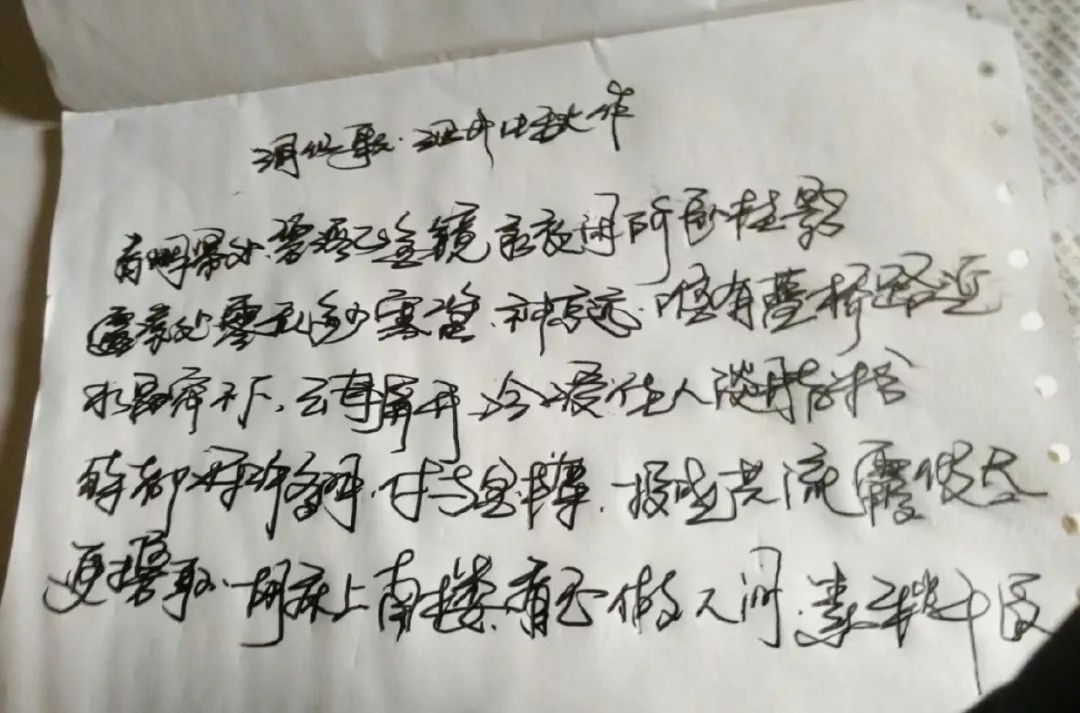 洞仙歌·泗州中秋作
青烟幂处碧海飞金镜永夜闲阶卧桂影
露凉处零乱多少寒螀神京远唯有蓝桥路近
水晶帘不下云母屏开冷浸佳人淡脂粉
待都将许多明付与金樽投晓共流霞倾尽
更携取胡床上南楼看玉做人间素秋千顷